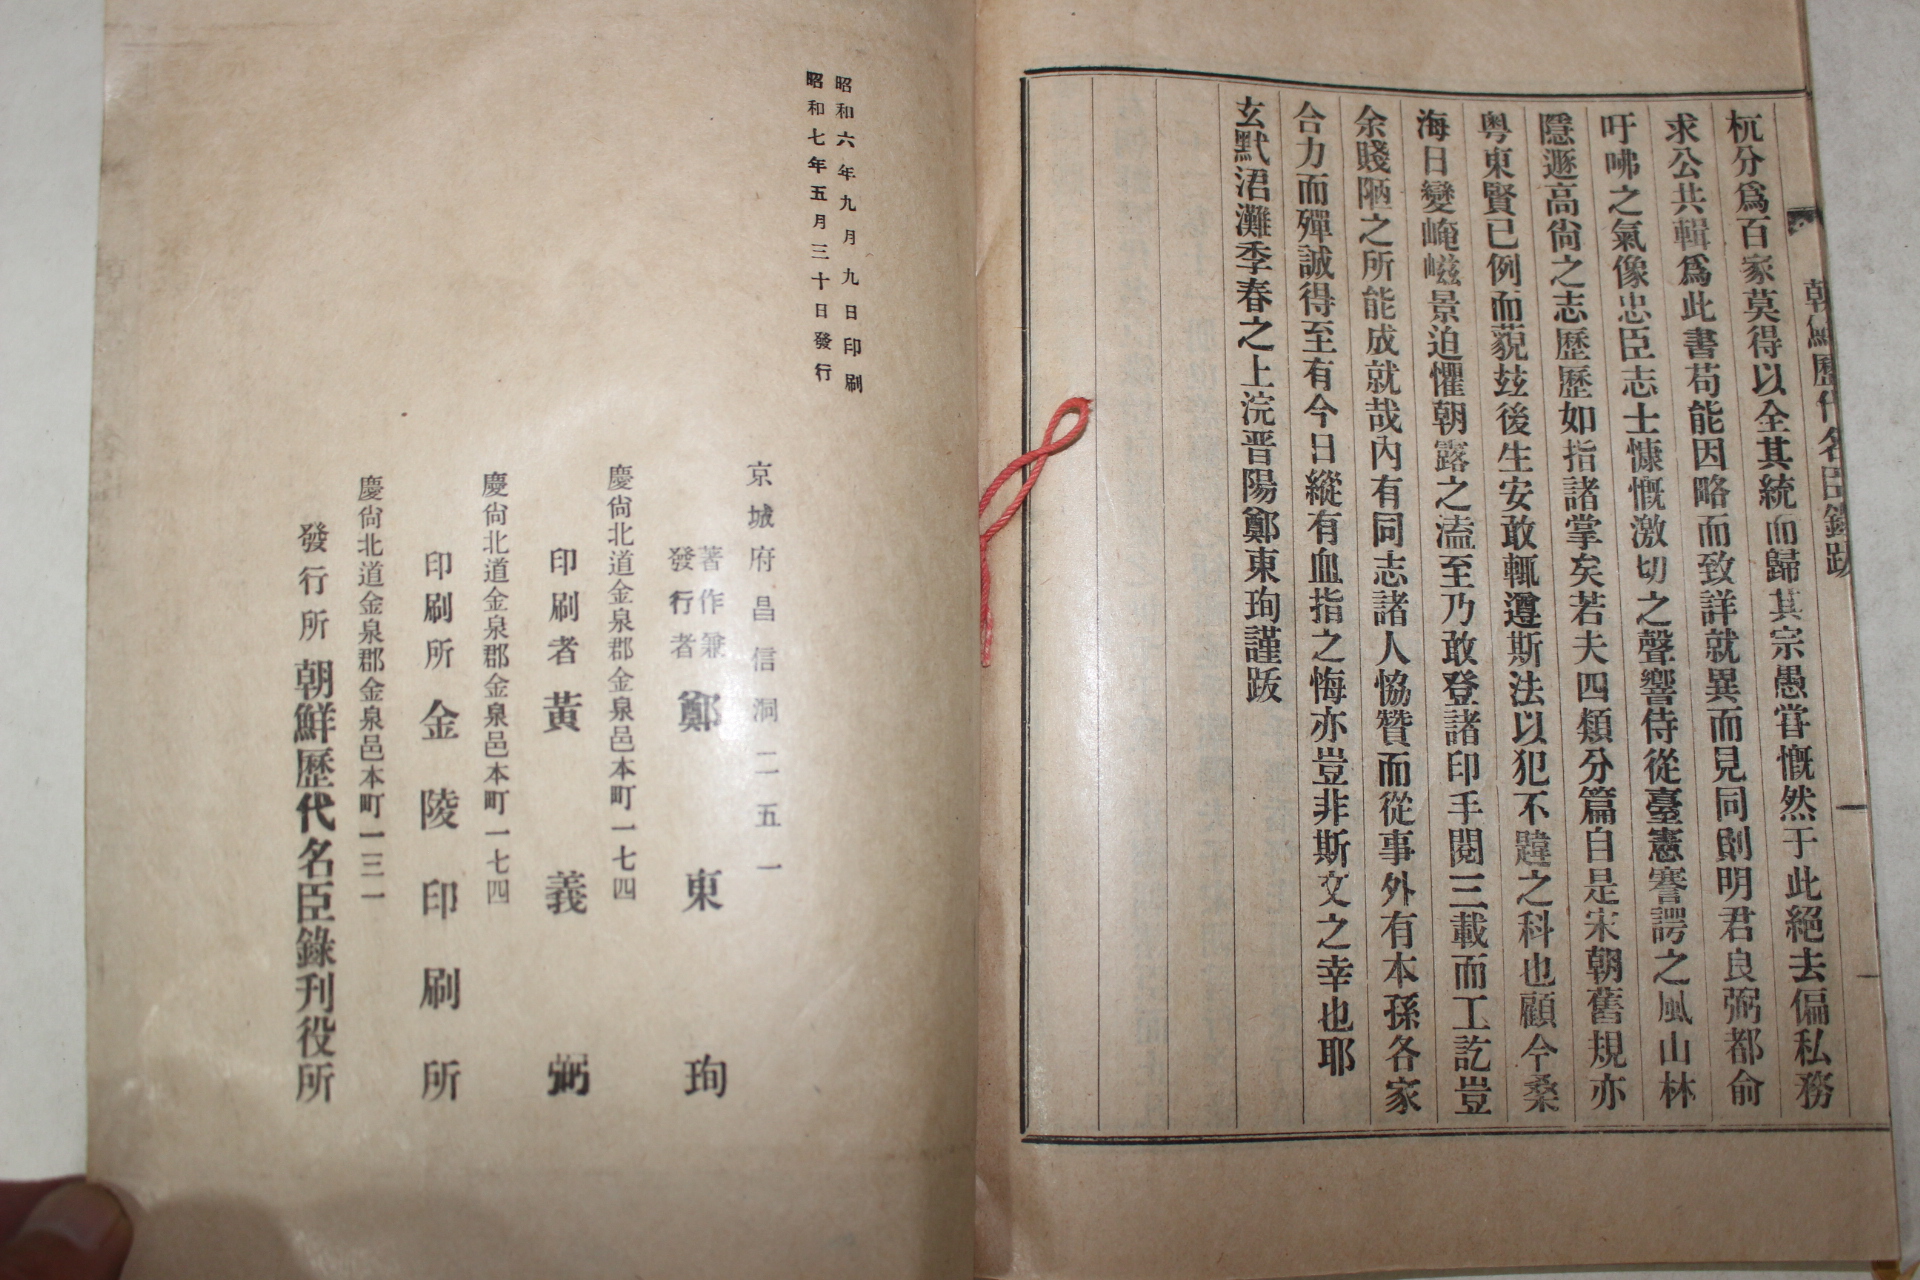 朝鮮歷代名臣錄跋
杭分爲百家莫得以全其統而歸其宗愚嘗慨然于此絕去偏私務
求公共輯爲此書苟能因略而致詳就異而見同則明君良弼都兪
吁咈之氣像忠臣志士慷慨激切之聲響侍從臺憲謇諤之風山林
隱遯高尙之志歷歷如指諸掌矣若夫四類分篇自是宋朝舊規亦
粤東賢已例而藐玆後生安敢輒遵斯法以犯不韙之科也顧今桑
海日變崦嵫景迫懼朝露之溘至乃敢登諸印手閱三載而工訖豈
余賤陋之所能成就哉內有同志諸人恊贊而從事外有本孫各家
合力而殫誠得至有今日縱有血指之悔亦豈非斯文之幸也耶
玄默涒灘季春之上浣晋陽鄭東珣謹跋
昭和六年九月九日印刷
昭和七年五月三十日發行
京城府昌信洞二五一
著作兼
發行者 鄭東珣
慶尙北道金泉郡金泉邑本町一七四
印刷者 黃義弼
慶尙北道金泉郡金泉邑本町一七四
印刷所 金陵印刷所
慶尙北道金泉郡金泉邑本町一三一
發行所 朝鮮歷代名臣錄刊役所